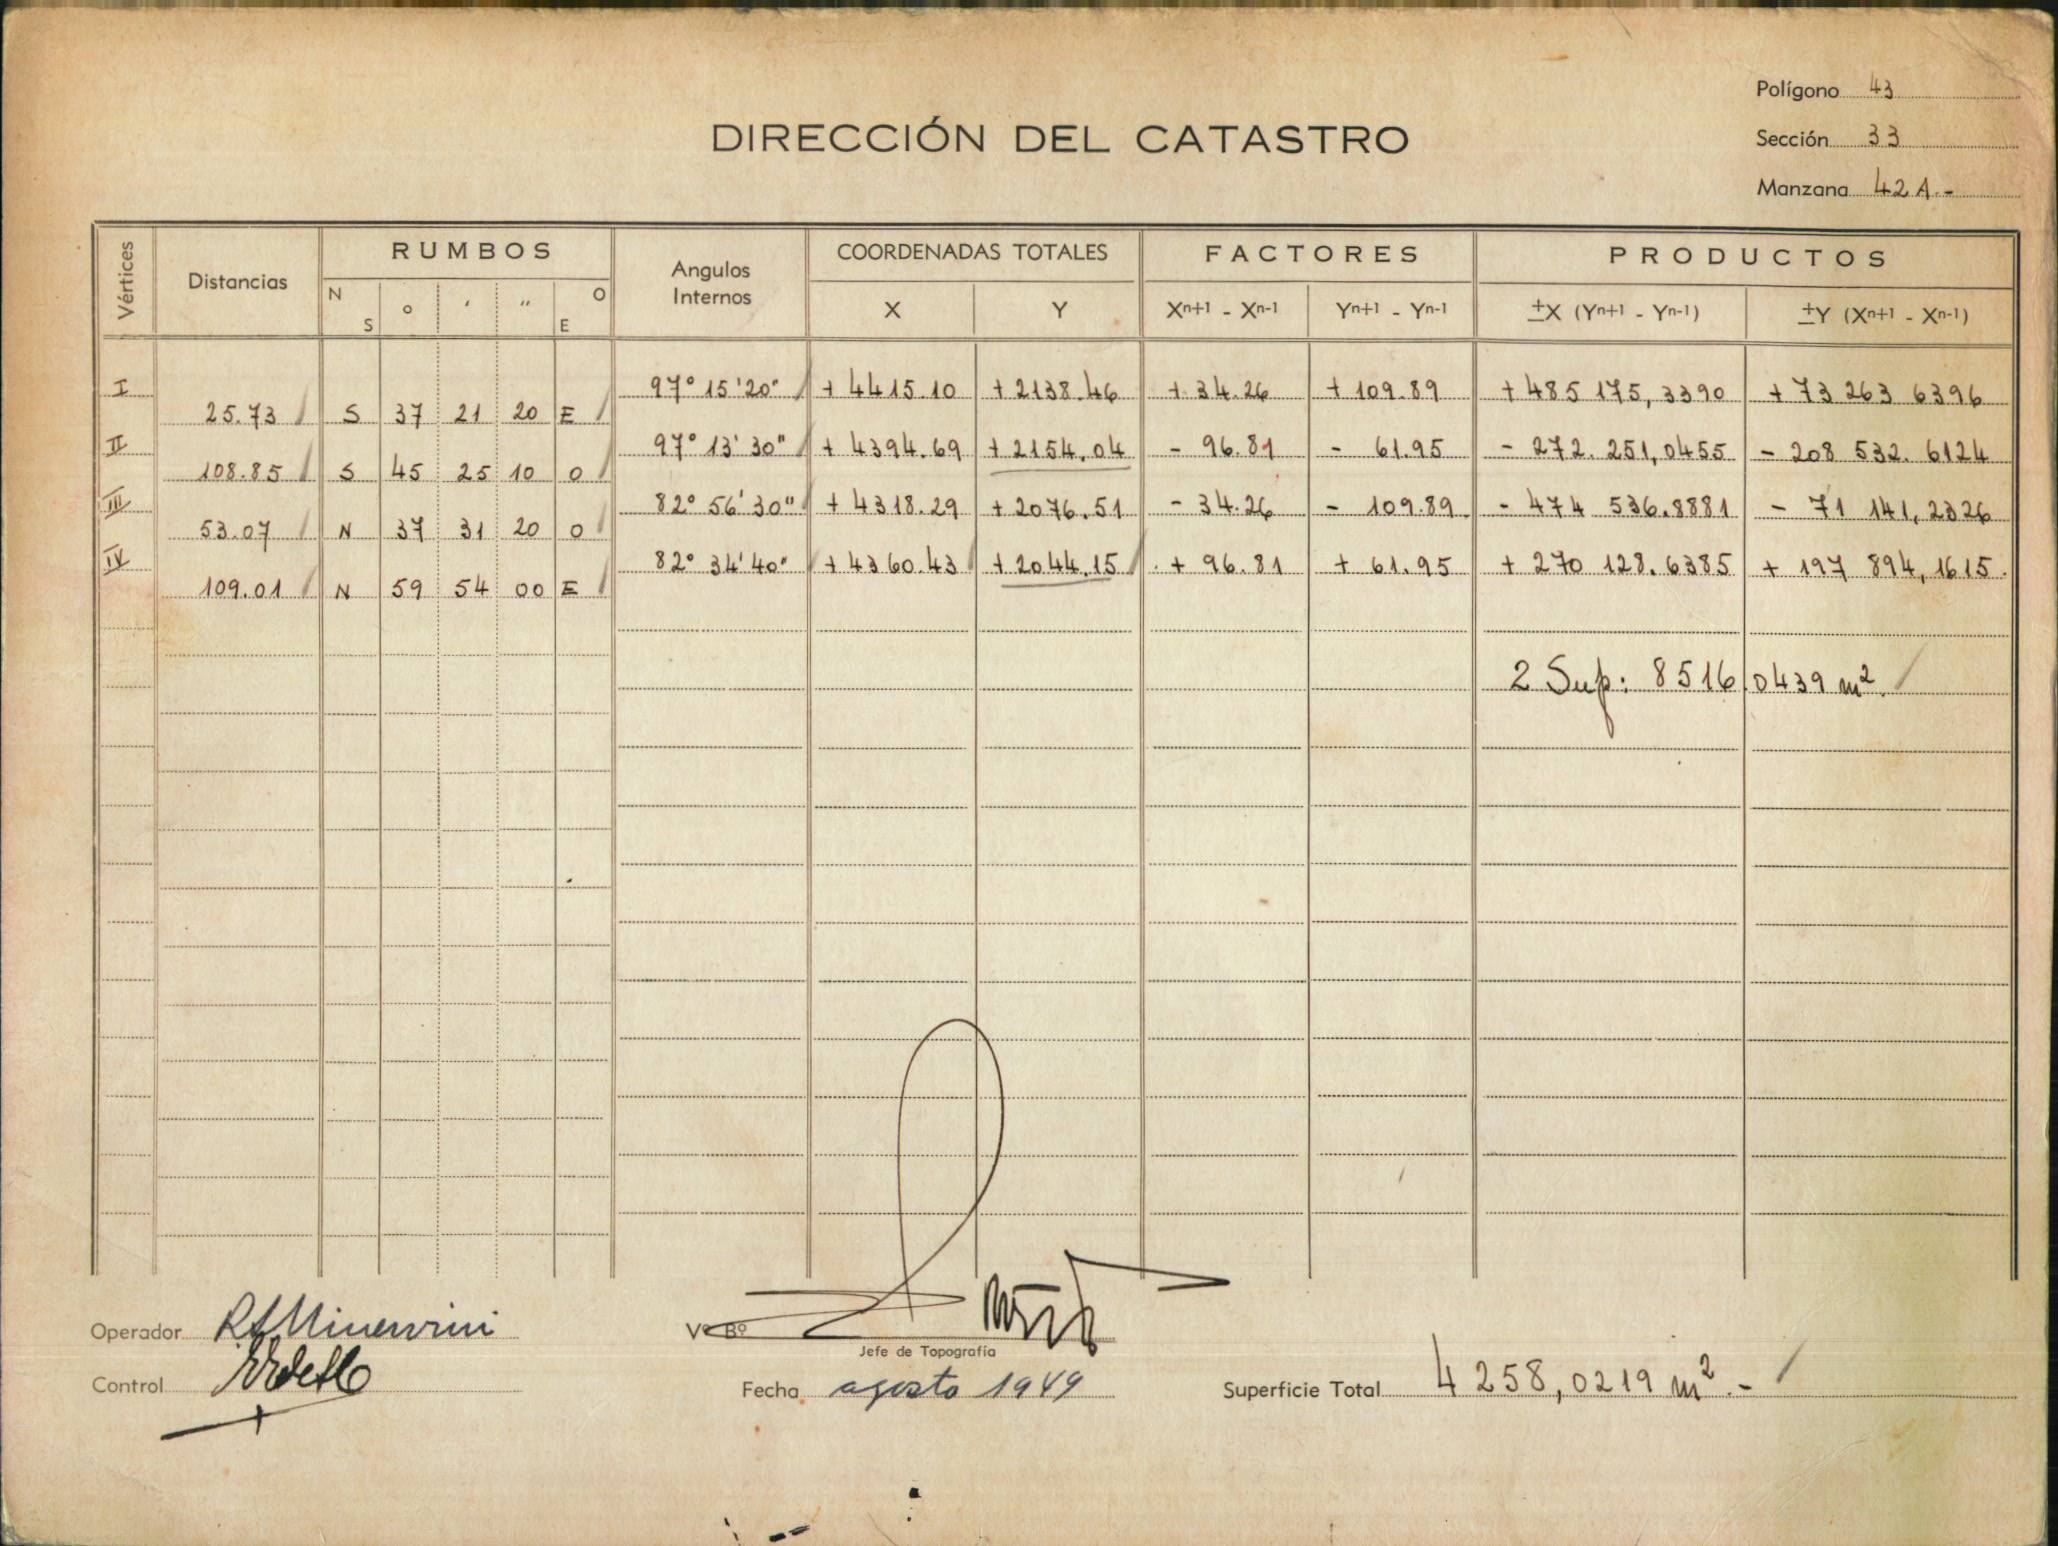 Polígono 43
DIRECCIÓN DEL CATASTRO
Sección 33
Manzana 42A.-
Vértices Distancias RUMBOS Angulos Internos COORDENADAS TOTALES FACTORES PRODUCTOS
N S ° ' " O E X Y Xn+1 - Xn-1 Yn+1 - Yn-1 ±X (Yn+1 - Yn-1) ±Y (Xn+1 - Xn-1)
I 97° 15' 20" + 4415.10 + 2138.46 + 34.26 + 109.89 + 485 175,3390 + 73 263 6396
25.73 S 37 21 20 E
II 97° 13' 30" + 4394.69 + 2154.04 - 96.81 - 61.95 - 272. 251,0455 - 208 532. 6124
108.85 S 45 25 10 O
III 82° 56' 30" + 4318.29 + 2076.51 - 34.26 - 109.89 - 474 536.8881 - 71 141,2326
53.07 N 37 31 20 O
IV 82° 34' 40" + 4360.43 + 2044.15 + 96.81 + 61.95 + 270 128.6385 + 197 894,1615
109.01 N 59 54 00 E
2 Sup: 8516.0439 m²
Operador R A Minervini
Vº Bº
Jefe de Topografía
Control
Fecha agosto 1949
Superficie Total 4258,0219 m².-